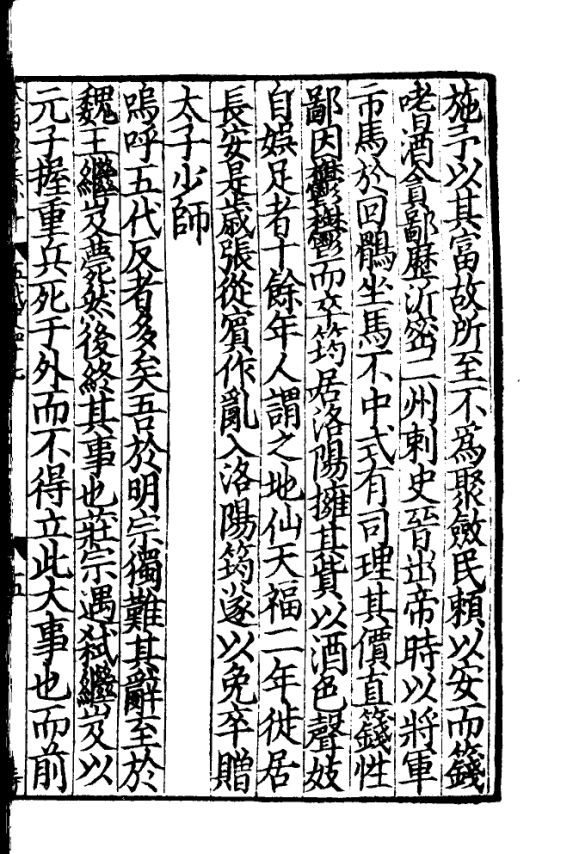 施予以其富故所至不為聚斂民頼以安而籛
嗜酒貪鄙歷沂密二州刺史晉出帝時以將軍
市馬於回鶻坐馬不中式有司理其價直籛性
鄙因鬱鬱而卒筠居洛陽擁其貲以酒色聲妓
自娯足者十餘年人謂之地仙天福二年徙居
長安是歲張從賔作亂入洛陽筠遂以免卒贈
太子少師
嗚呼五代反者多矣吾於明宗獨難其辭至於
魏王繼岌薨然後終其事也莊宗遇弑繼岌以
元子握重兵死于外而不得立此大事也而前